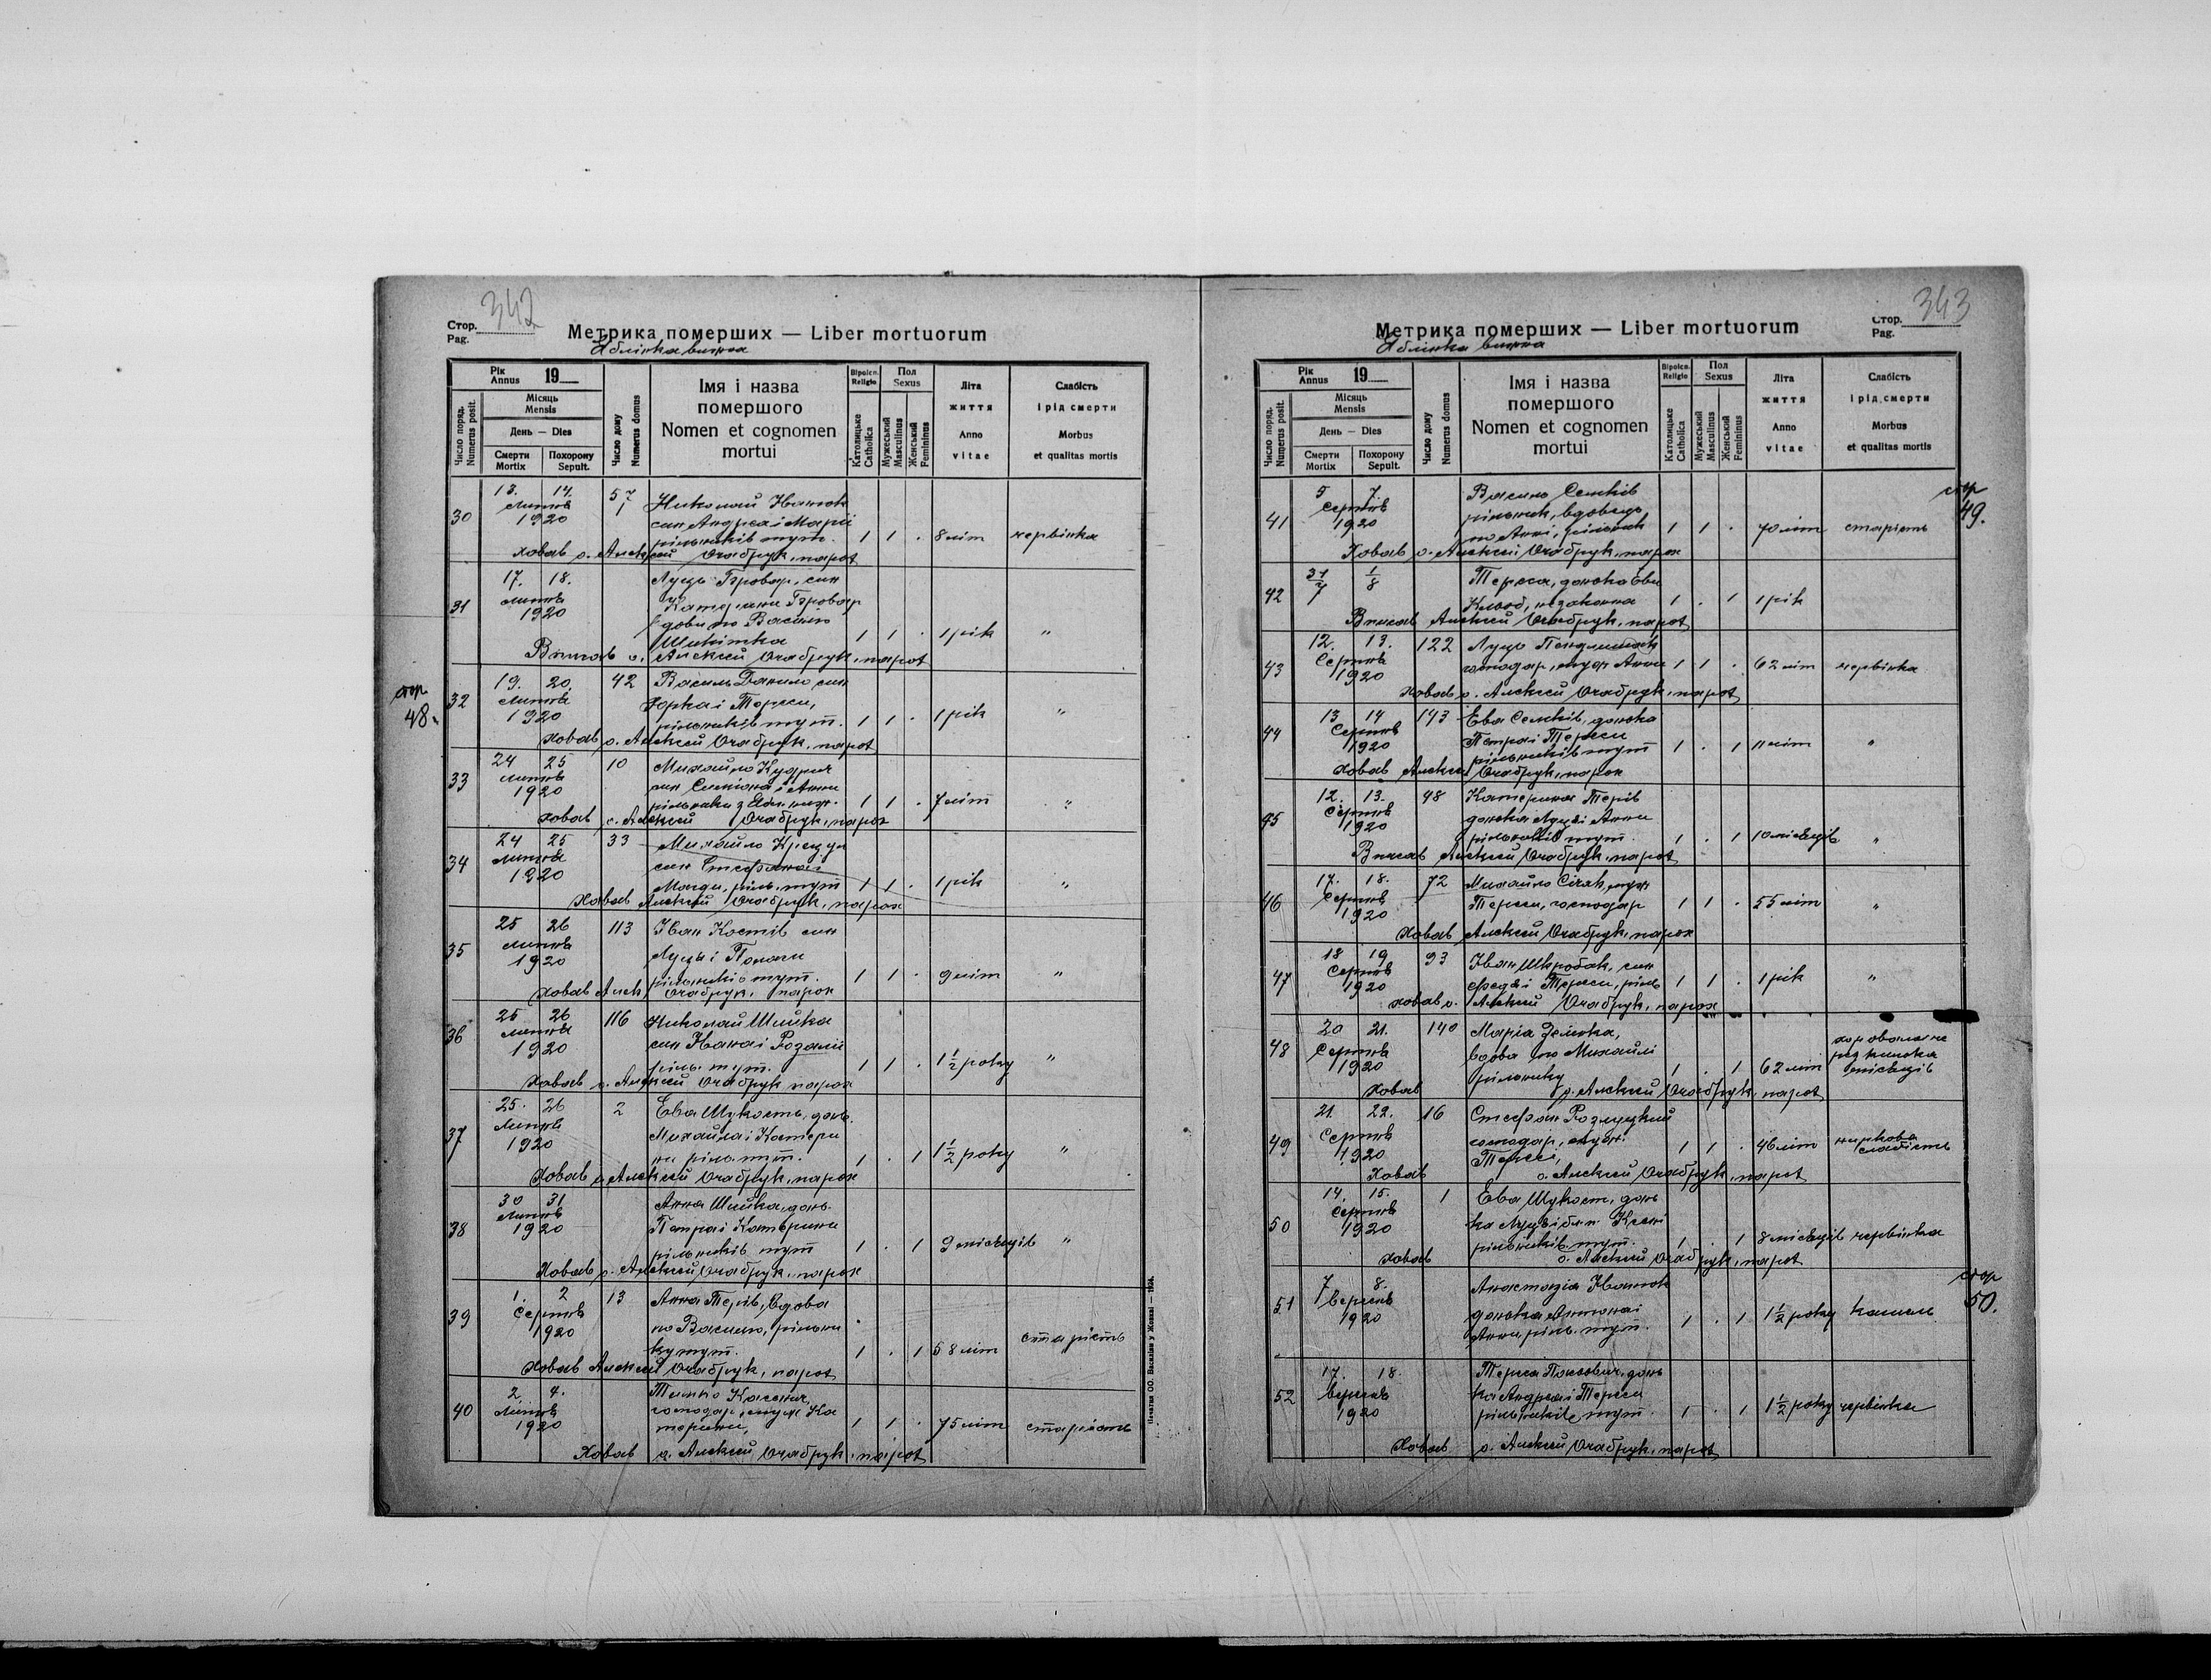 342
Стор.
Pag.
Метрика померших — Liber mortuorum
Яблінка вижна
Рік Annus 19
Місяць Mensis
День — Dies
Число поряд. Numerus posit.
Смерти Mortix
Похорону Sepult.
Число дому Numerus domus
Імя і назва помершого
Nomen et cognomen mortui
Віроісп. Religio
Католицьке Catholica
Пол Sexus
Мужеський Masculinus
Женський Femininus
Літа життя
Anno vitae
Слабість і рід смерти
Morbus et qualitas mortis
30 13. 14. 57 Николай Іванюк
Липня син Андрея і Марії
1920 рільників тут. 1 1 . 8 літ червінка
Ховав о. Алексій парох
31 17. 18. Луць син
липня Катерини
1920 вдови по Василю
1 1 . 1 рік "
Вписав о. Алексій парох
стор 48.
32 19. 20. 42 Василь Данило син
Липня Юрка і Тереси,
1920 рільників тут. 1 1 . 1 рік "
Ховав о. Алексій парох
33 24 25 10 Михайло
липня син Симеона і Анни
1920 рільника з 1 1 . 7 літ "
Ховав о. Алексій парох
34 24 25 33 Михайло
липня син Стефана і
1920 Магди, ріль. тут 1 1 . 1 рік "
Ховав Алексій парох
35 25 26 113 Іван Костів син
липня Луця і
1920 рільників тут. 1 1 . 9 літ "
Ховав Алек. парох
36 25 26 116 Николай Шийка
липня син Івана і Розалії
1920 ріль. тут. 1 1 . 1½ року "
Ховав о. Алексій парох
37 25. 26 2 Ева Шукость, донь.
Липня Михайла і Катери
1920 ни ріль. тут. 1 . 1 1½ року "
Ховав о. Алексій парох
38 30 31 Анна Шийка, донь.
Липня Петра і Катерини
1920 рільників тут 1 . 1 9 місяців "
Ховав о. Алексій парох
39 1. 2 13 Анна Терів, вдова
Серпня по Василю, рільни
1920 ку тут. 1 . 1 58 літ старість
Ховав Алексій парох
40 2 4. Тимко
Липня господар, муж Ка
1920 терини, 1 1 . 75 літ старість
Ховав о. Алексій парох
Печатня ОО. Василіян у Жовкві — 1934.
343
Стор.
Pag.
Метрика померших — Liber mortuorum
Яблінка вижна
Рік Annus 19
Місяць Mensis
День — Dies
Число поряд. Numerus posit.
Смерти Mortix
Похорону Sepult.
Число дому Numerus domus
Імя і назва помершого
Nomen et cognomen mortui
Віроісп. Religio
Католицьке Catholica
Пол Sexus
Мужеський Masculinus
Женський Femininus
Літа життя
Anno vitae
Слабість і рід смерти
Morbus et qualitas mortis
стор 49.
41 5 7. Василь Семків
Серпня рільник, вдовець
1920 по Анні, рільник 1 1 . 70 літ старість
Ховав о. Алексій парох
42 31/7 1/8 Тереса, донька Еви
незаконна 1 . 1 1 рік
Вписав Алексій парох
43 12. 13. 122 Луць
Серпня господар, муж Анни 1 1 . 62 літ червінка
1920
Ховав о. Алексій парох
44 13 14 143 Ева Семків, донька
Серпня Петра і Тереси
1920 рільників тут 1 . 1 11 літ "
Ховав Алексій парох
45 12. 13. 48 Катерина Терів
Серпня донька Луця і Анни
1920 рільників тут. 1 . 1 10 місяців "
Вписав Алексій парох
46 17. 18. 72 Михайло муж
Серпня Тереси, господар 1 1 . 55 літ "
1920
Ховав Алексій парох
47 18 19 93 Іван Шкробак, син
Серпня Федя і Тереси, ріль 1 1 . 1 рік "
1920
Ховав о. Алексій парох
48 20 21. 140 Марія
Серпня вдова по Михайлі
1920 рільнику 1 . 1 62 літ хоровала через кілька місяців
Ховав о. Алексій парох
49 21. 22. 16 Стефан Розлуцкий
Серпня господар, муж
1920 Тереси, 1 1 . 46 літ ниркова слабість
Ховав о. Алексій парох
50 14. 15. 1 Ева Шукост, донь
Серпня ка Луця і
1920 рільників тут. 1 . 1 8 місяців червінка
Ховав о. Алексій парох
стор 50.
51 7 8. Анастазія Іванюк
Вересня донька Антона і
1920 Анни, ріль. тут. 1 . 1 1½ року кашель
52 17. 18. Тереса донь
Вересня ка Андрея і Тереси
1920 рільників тут. 1 . 1 1½ року червінка
Ховав о. Алексій парох